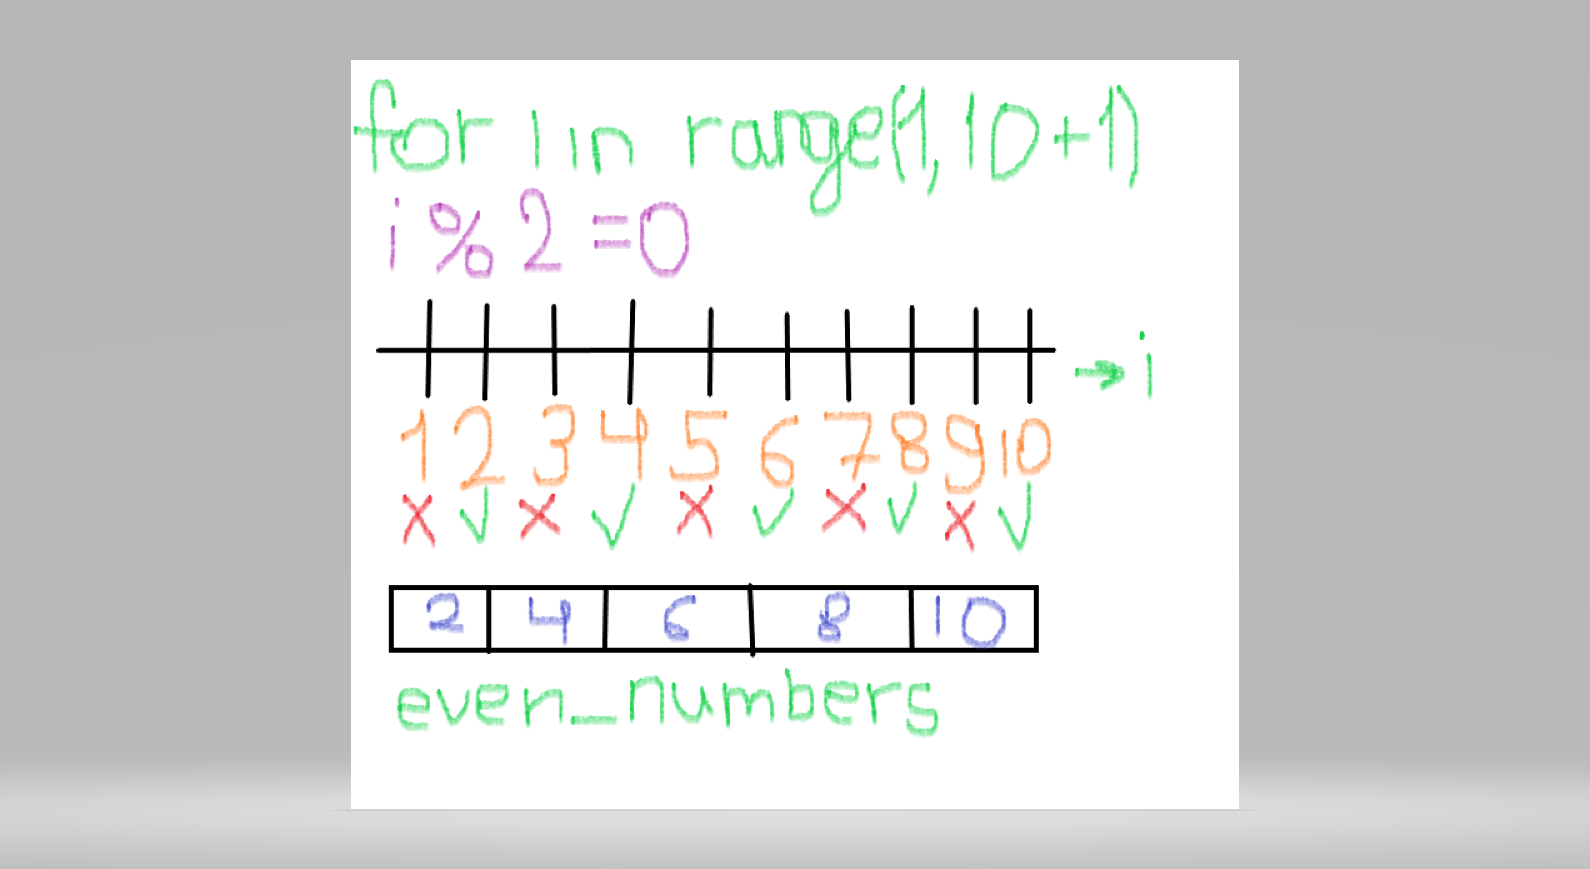 for i in range(1, 10+1)
i % 2 =0
→ i
1 2 3 4 5 6 7 8 9 10
x ✓ x ✓ x ✓ x ✓ x ✓
2 4 6 8 10
even_numbers